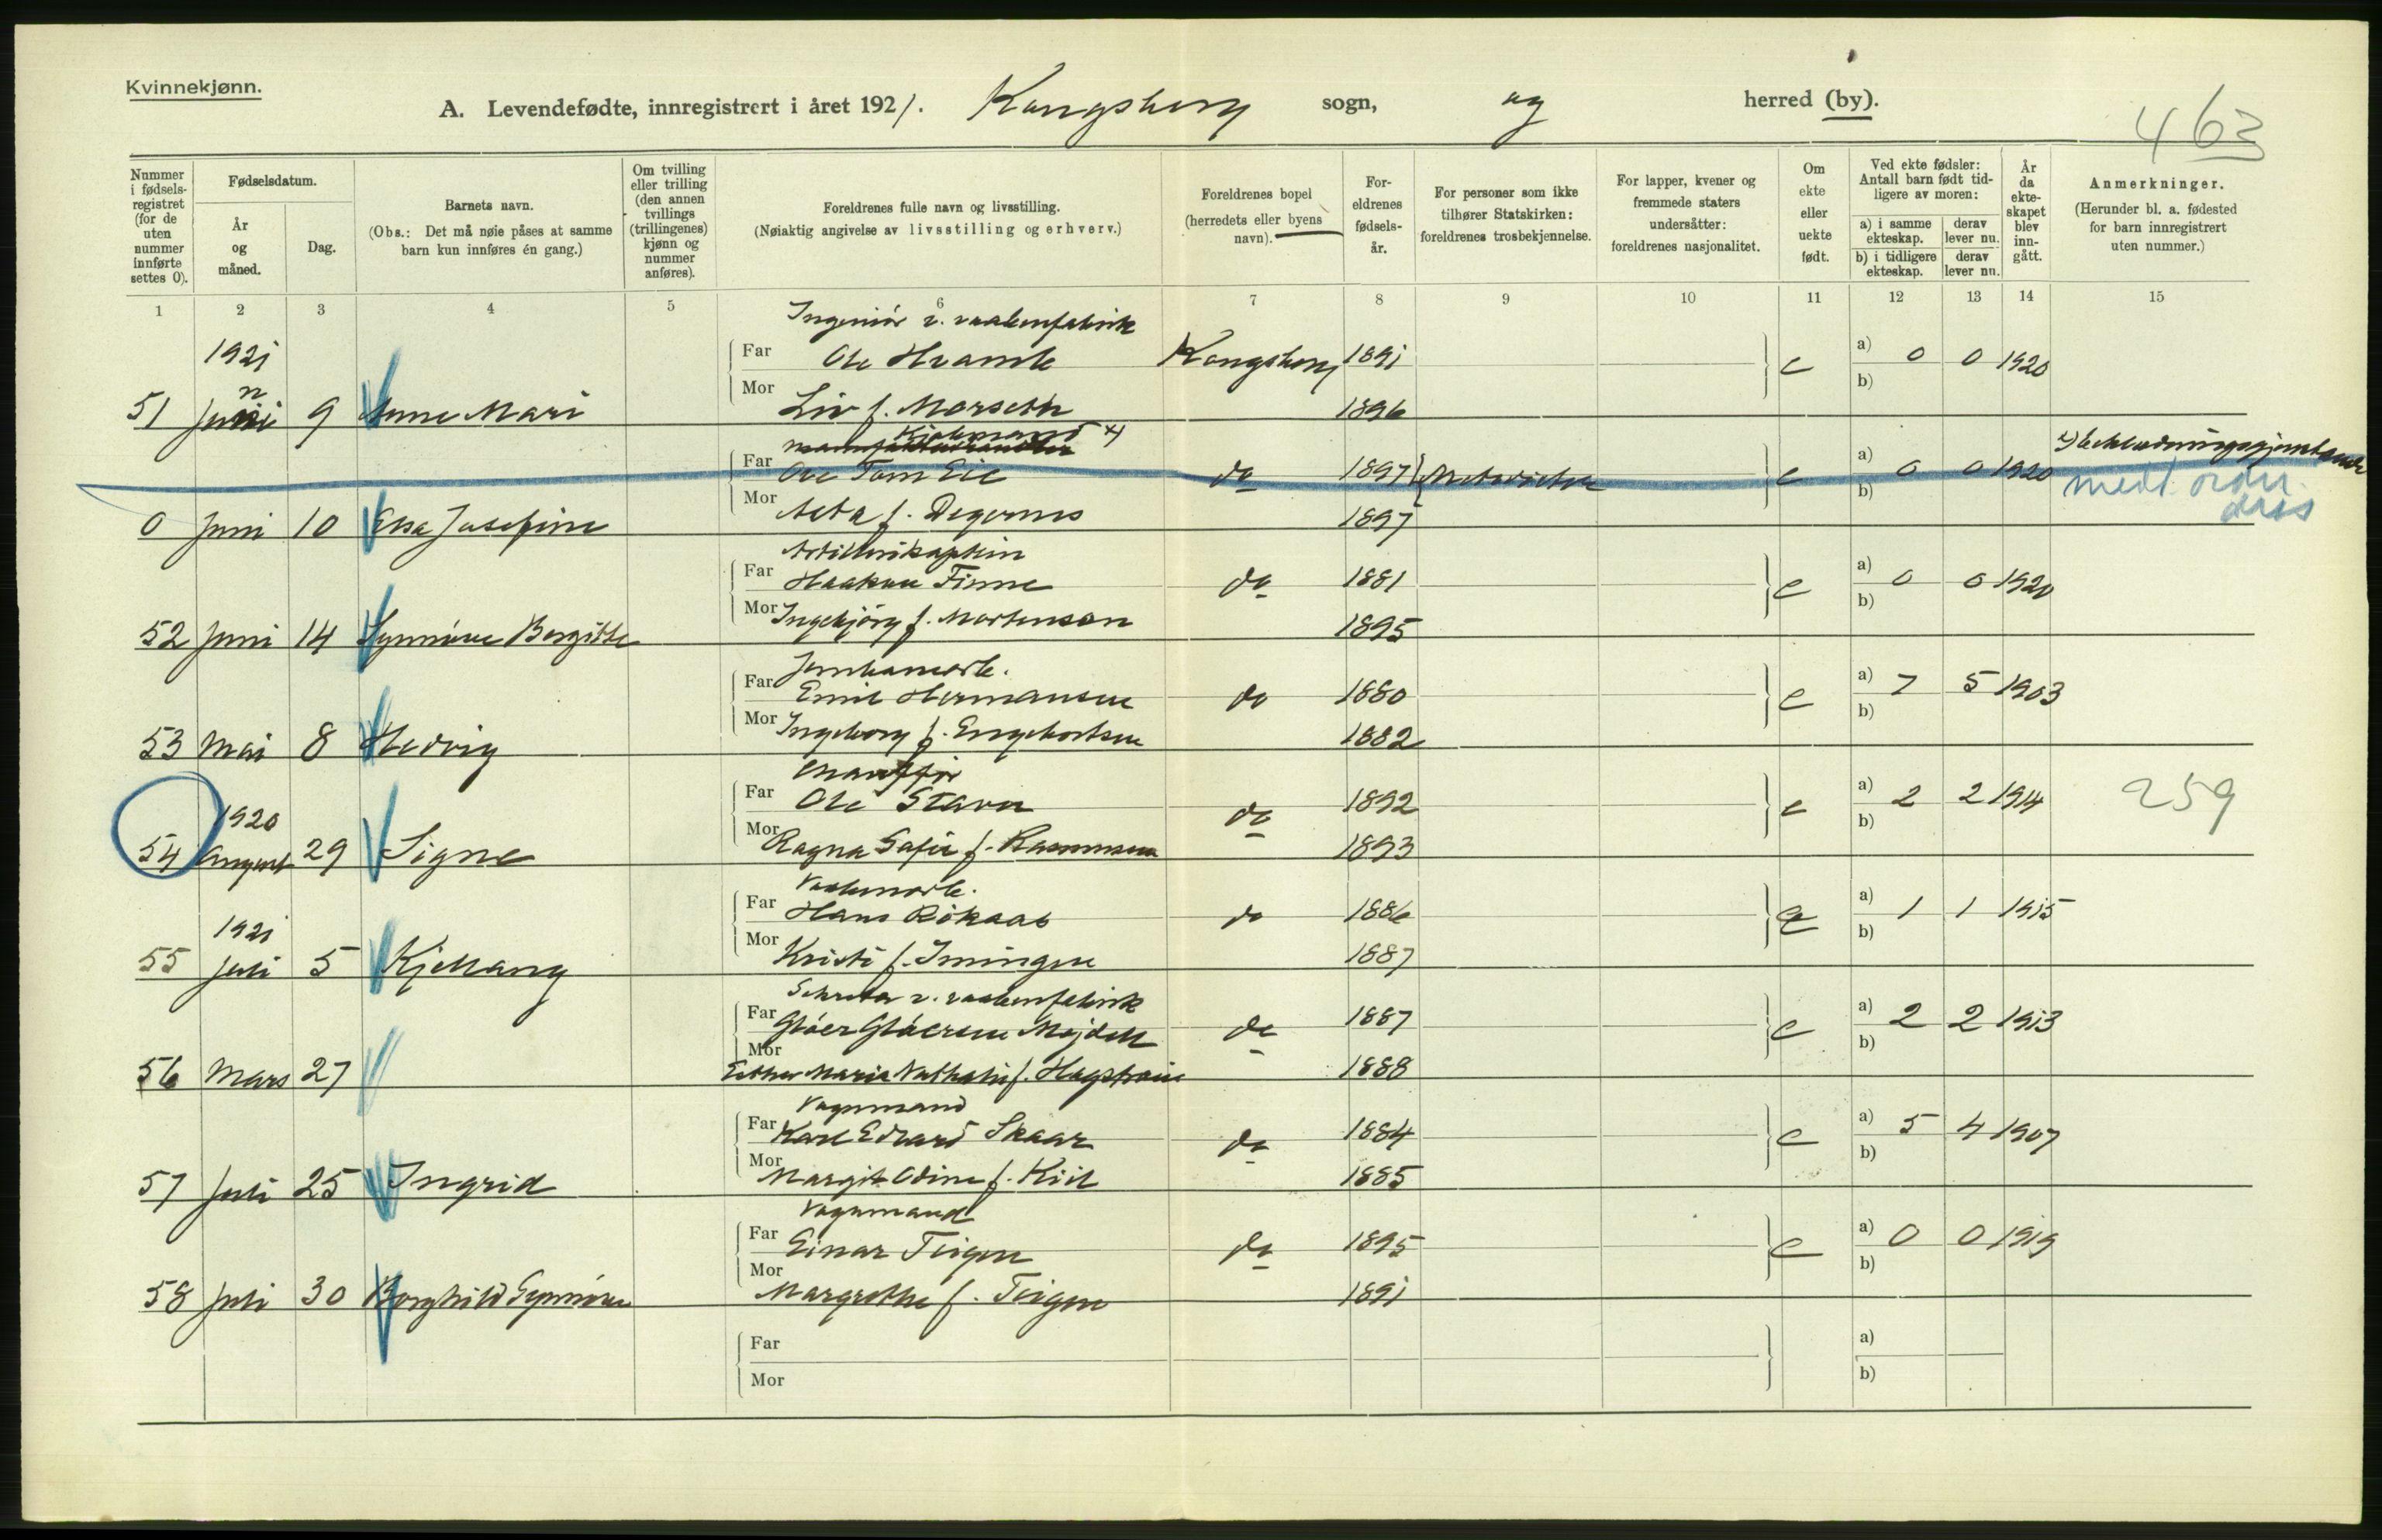 Kvinnekjønn.
A. Levendefødte, innregistrert i året 1921. Kongsberg sogn, og herred (by).
463
Nummer i fødsels-registret (for de uten nummer innførte settes 0).
Fødselsdatum.
År og måned.
Dag.
Barnets navn.
(Obs.: Det må nøie påses at samme barn kun innføres én gang.)
Om tvilling eller trilling (den annen tvillings (trillingenes) kjønn og nummer anføres).
Foreldrenes fulle navn og livsstilling.
(Nøiaktig angivelse av livsstilling og erhverv.)
Foreldrenes bopel (herredets eller byens navn).
For-eldrenes fødsels-år.
For personer som ikke tilhører Statskirken: foreldrenes trosbekjennelse.
For lapper, kvener og fremmede staters undersåtter: foreldrenes nasjonalitet.
Om ekte eller uekte født.
Ved ekte fødsler: Antall barn født tid-ligere av moren:
a) i samme ekteskap.
derav lever nu.
b) i tidligere ekteskap.
derav lever nu.
År da ekte-skapet blev inn-gått.
Anmerkninger.
(Herunder bl. a. fødested for barn innregistrert uten nummer.)
1 2 3 4 5 6 7 8 9 10 11 12 13 14 15
Ingeniör v. vaabenfabrik
1921 Far Ole Hramb Kongsberg 1891 e a) 0 0 1920
b)
51 Juni 9 Anne Mari Mor Liv f. Morseth 1896
Kjøbmand x)
Far Ole Tom Eie do 1897 Metodister e a) 0 0 1920 x) beklædningsgjenstande
b) medl. orden. diss
0 Juni 10 Elsa Josefine Mor Asta f. Degernes 1897
Artillerikaptein
Far Haakon Finne do 1881 e a) 0 0 1920
b)
52 Juni 14 Synnöve Bergitte Mor Ingebjörg f. Mortenson 1895
Far Emil Hermansen do 1880 e a) 7 5 1903
b)
53 Mai 8 Hedvig Mor Ingeborg f. Engebretsen 1882
Chauffør
Far Ole Stavn do 1892 e a) 2 2 1914 259
1920 b)
54 August 29 Signe Mor Ragna Sofie f. Rasmussen 1893
Vaabenarb.
Far Hans Rökaas do 1886 e a) 1 1 1915
1921 b)
55 Juli 5 Kjellaug Mor Kristi f. Imingen 1887
v. vaabenfabrik
Far Glöer Glöersen Mejdell do 1887 e a) 2 2 1913
b)
56 Mars 27 Mor Esther Maria Nathalie f. Hagstrøm 1888
Vognmand
Far Karl Edvard Skaar do 1884 e a) 5 4 1907
b)
57 Juli 25 Ingrid Mor Margit Odine f. Kiil 1885
Vognmand
Far Einar Teigen do 1895 e a) 0 0 1919
b)
58 Juli 30 Borghild Synnöve Mor Margrethe f. Teigen 1891
Far a)
Mor b)